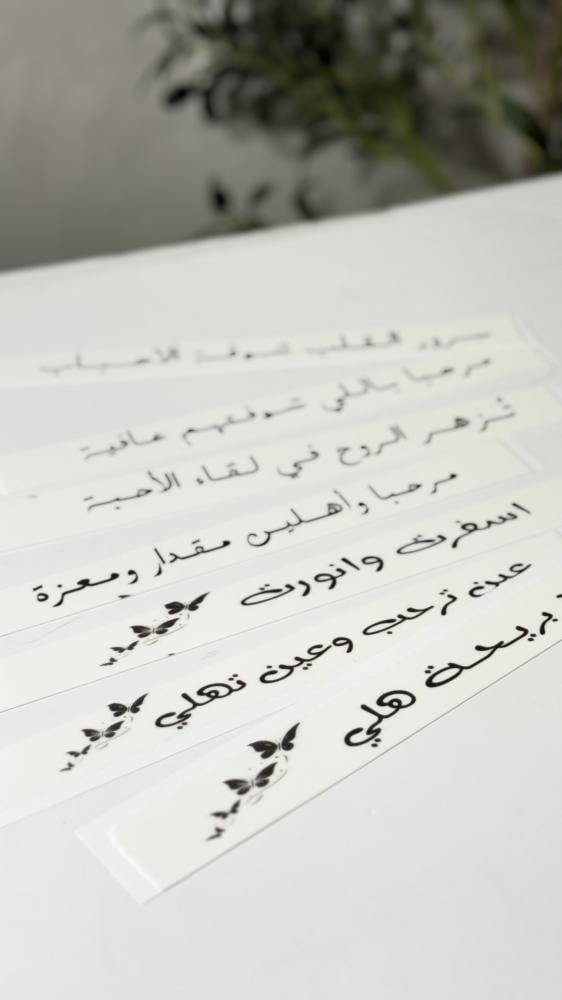 سرور القلب شوفت الأحباب
مرحبا باللي شوفتهم عافية
تُزهر الروح في لقاء الأحبة
مرحبا وأهلين مقدار ومعزة
اسفرت وانورت
عين ترحب وعين تهلي
بريحة هلي